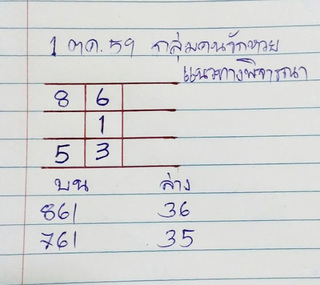 1 ต.ค. 59 กลุ่มคนรักหวย
แนวทางพิจารณา
8 6
1
5 3
บน ล่าง
861 36
761 35